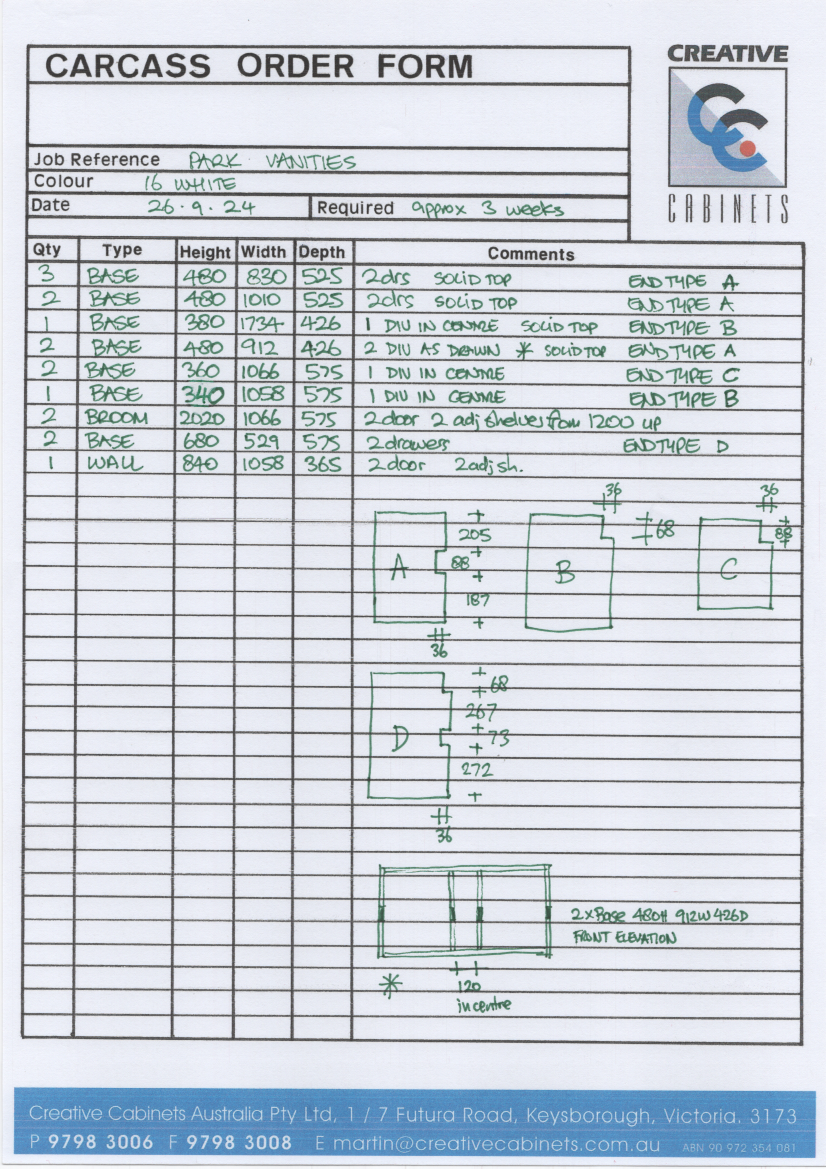 CREATIVE
CARCASS ORDER FORM
Job Reference PARK VANITIES
Colour 16 WHITE
CABINETS
Date 26.9.24 Required approx 3 weeks
Qty Type Height Width Depth Comments
3 BASE 480 830 525 2drs SOLID TOP END TYPE A
2 BASE 480 1010 525 2drs SOLID TOP END TYPE A
1 BASE 380 1734 426 1 DIV IN CENTRE SOLID TOP END TYPE B
2 BASE 480 912 426 2 DIV AS DRAWN * SOLID TOP END TYPE A
2 BASE 360 1066 575 1 DIV IN CENTRE END TYPE C
1 BASE 340 1058 575 1 DIV IN CENTRE END TYPE B
2 BROOM 2020 1066 575 2door 2 adj shelves from 1200 up
2 BASE 680 529 575 2drawers END TYPE D
1 WALL 840 1058 365 2door 2adj sh.
36 36
205 68 88
A 88 B C
187
36
68
267
D 73
272
36
2xBase 480H 912W 426D
FRONT ELEVATION
* 120
in centre
Creative Cabinets Australia Pty Ltd, 1 / 7 Futura Road, Keysborough, Victoria. 3173
P 9798 3006 F 9798 3008 E martin@creativecabinets.com.au ABN 90 972 354 081